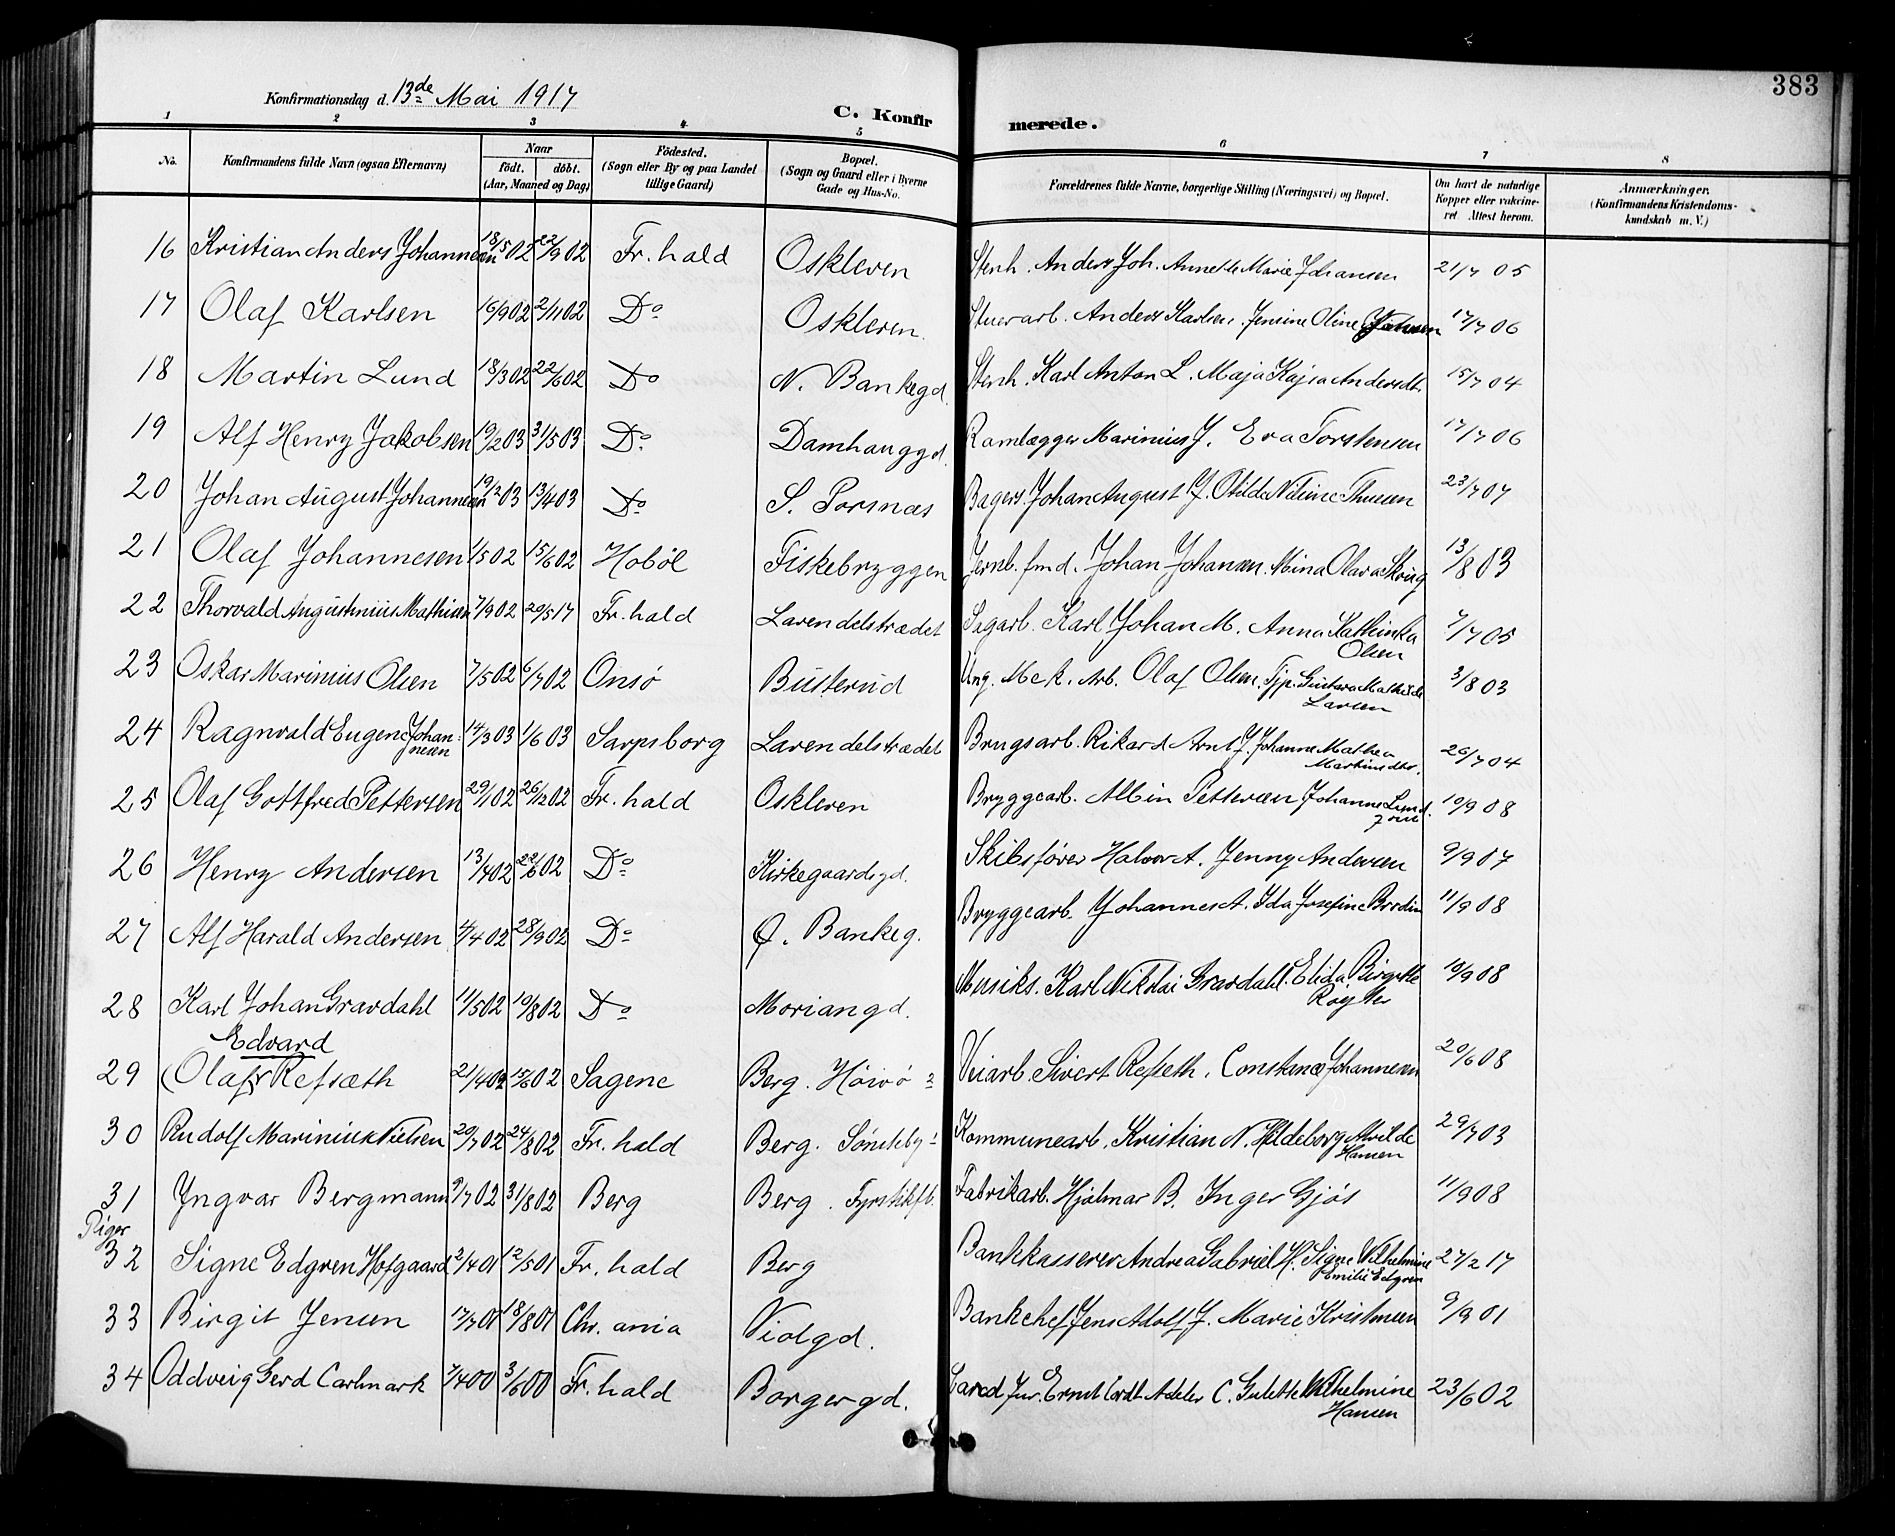 383
Konfirmationsdag d. 13de Mai 1917
C. Konfirmerede.
1 2 3 4 5 6 7 8
No. Konfirmandens fulde Navn (ogsaa Efternavn) Naar födt. döbt. (Aar, Maaned og Dag) Födested. (Sogn eller By og paa Landet tillige Gaard) Bopæl. (Sogn og Gaard eller i Byerne Gade og Hus-No. Forældrenes fulde Navne, borgerlige Stilling (Næringsvei) og Bopæl. Om havt de naturlige Kopper eller vakcineret. Attest herom. Anmærkninger. (Konfirmandens Kristendomskundskab m. V.)
16 Kristian Anders Johannesen 18/5 02 22/9 02 Fr.hald Oskleven Stenh. Anders Joh. Annette Marie Johansen 21/7 05
17 Olaf Karlsen 16/9 02 2/11 02 Do Oskleven Stuerarb. Anders Karlsen, Jensine Oline 17/7 06
18 Martin Lund 18/3 02 22/6 02 Do N. Bankegd. Stenh. Karl Anton L. Maja Kajsa Andersdtr. 15/7 04
19 Alf Henry Jakobsen 19/2 03 31/5 03 Do Damhauggd. Marinius J. Eva Torstensen 17/7 06
20 Johan August Johannesen 19/2 03 13/4 03 Do S. Porsnæs Bagers. Johan August J. Otilde Nikine Thuesen 23/7 07
21 Olaf Johannesen 1/5 02 15/6 02 Hobøl Fiskebryggen Jernb. fmd. Johan Johansen Mina Olava Skrug 13/8 03
22 Thorvald Augustinius Mathisen 7/9 02 20/5 17 Fr.hald Lavendelstrædet Sagarb. Karl Johan M. Anna Kathinka Olsen 7/7 05
23 Oskar Marinius Olsen 7/5 02 6/7 02 Onsø Busterud Ung. Mek. Arb. Olaf Olsen. Tjp. Gustava Mathilde Larsen 3/8 03
24 Ragnvald Eugene Johannesen 14/3 03 1/6 03 Sarpsborg Lavendelstrædet Brugsarb. Rikard Arnt J. Johanne Mathea Martinsdtr. 26/7 04
25 Olaf Gottfred Pettersen 29/1 02 26/12 02 Fr.hald Oskleven Bryggearb. Albin Pettersen Johanne 10/9 08
26 Henry Andersen 13/4 02 22/6 02 Do Kirkegaardsgd. Skibsfører Halvor A. Jenny Andersen 9/9 07
27 Alf Harald Andersen 4/4 02 28/9 02 Do Ø. Bankeg. Bryggearb. Johannes A. Ida Josefine Brodin 11/9 08
28 Karl Johan Gravdahl 11/5 02 10/8 02 Do Moriangd. Musiks. Karl Nikolai Gravdahl. Elida Birgitte 10/9 08
Edvard
29 Olaf Refsæth 21/4 02 15/6 02 Sagene Berg. Veiarb. Sivert Refseth, Constance Johannesen 20/6 08
30 Rudolf Nielsen 20/7 02 24/8 02 Fr.hald Berg. Kommunearb. Kristian N. Hildeborg Alvilde Hansen 29/7 03
31 Yngvar Bergmann 9/7 02 31/8 02 Berg Berg. Fyrstikfb. Fabrikarb. Hjalmar B. Inger Gjøs 11/9 08
Piger
32 Signe Edgren Hofgaard 2/4 01 12/5 01 Fr.hald Berg Bankkasserer Andrea Gabriel H. Signe Vilhelmine Emilie Edgren 27/2 17
33 Birgit Jensen 17/7 01 18/8 01 Chr.ania Violgd. Bankchef Jens Adolf J. Marie Kristensen 9/9 01
34 Oddveig Gerd Carlmark 7/4 00 3/6 00 Fr.hald Borgergd. Cand. Jur. Ernst Cordt Adeler C. Gulette Wilhelmine Hansen 23/6 02